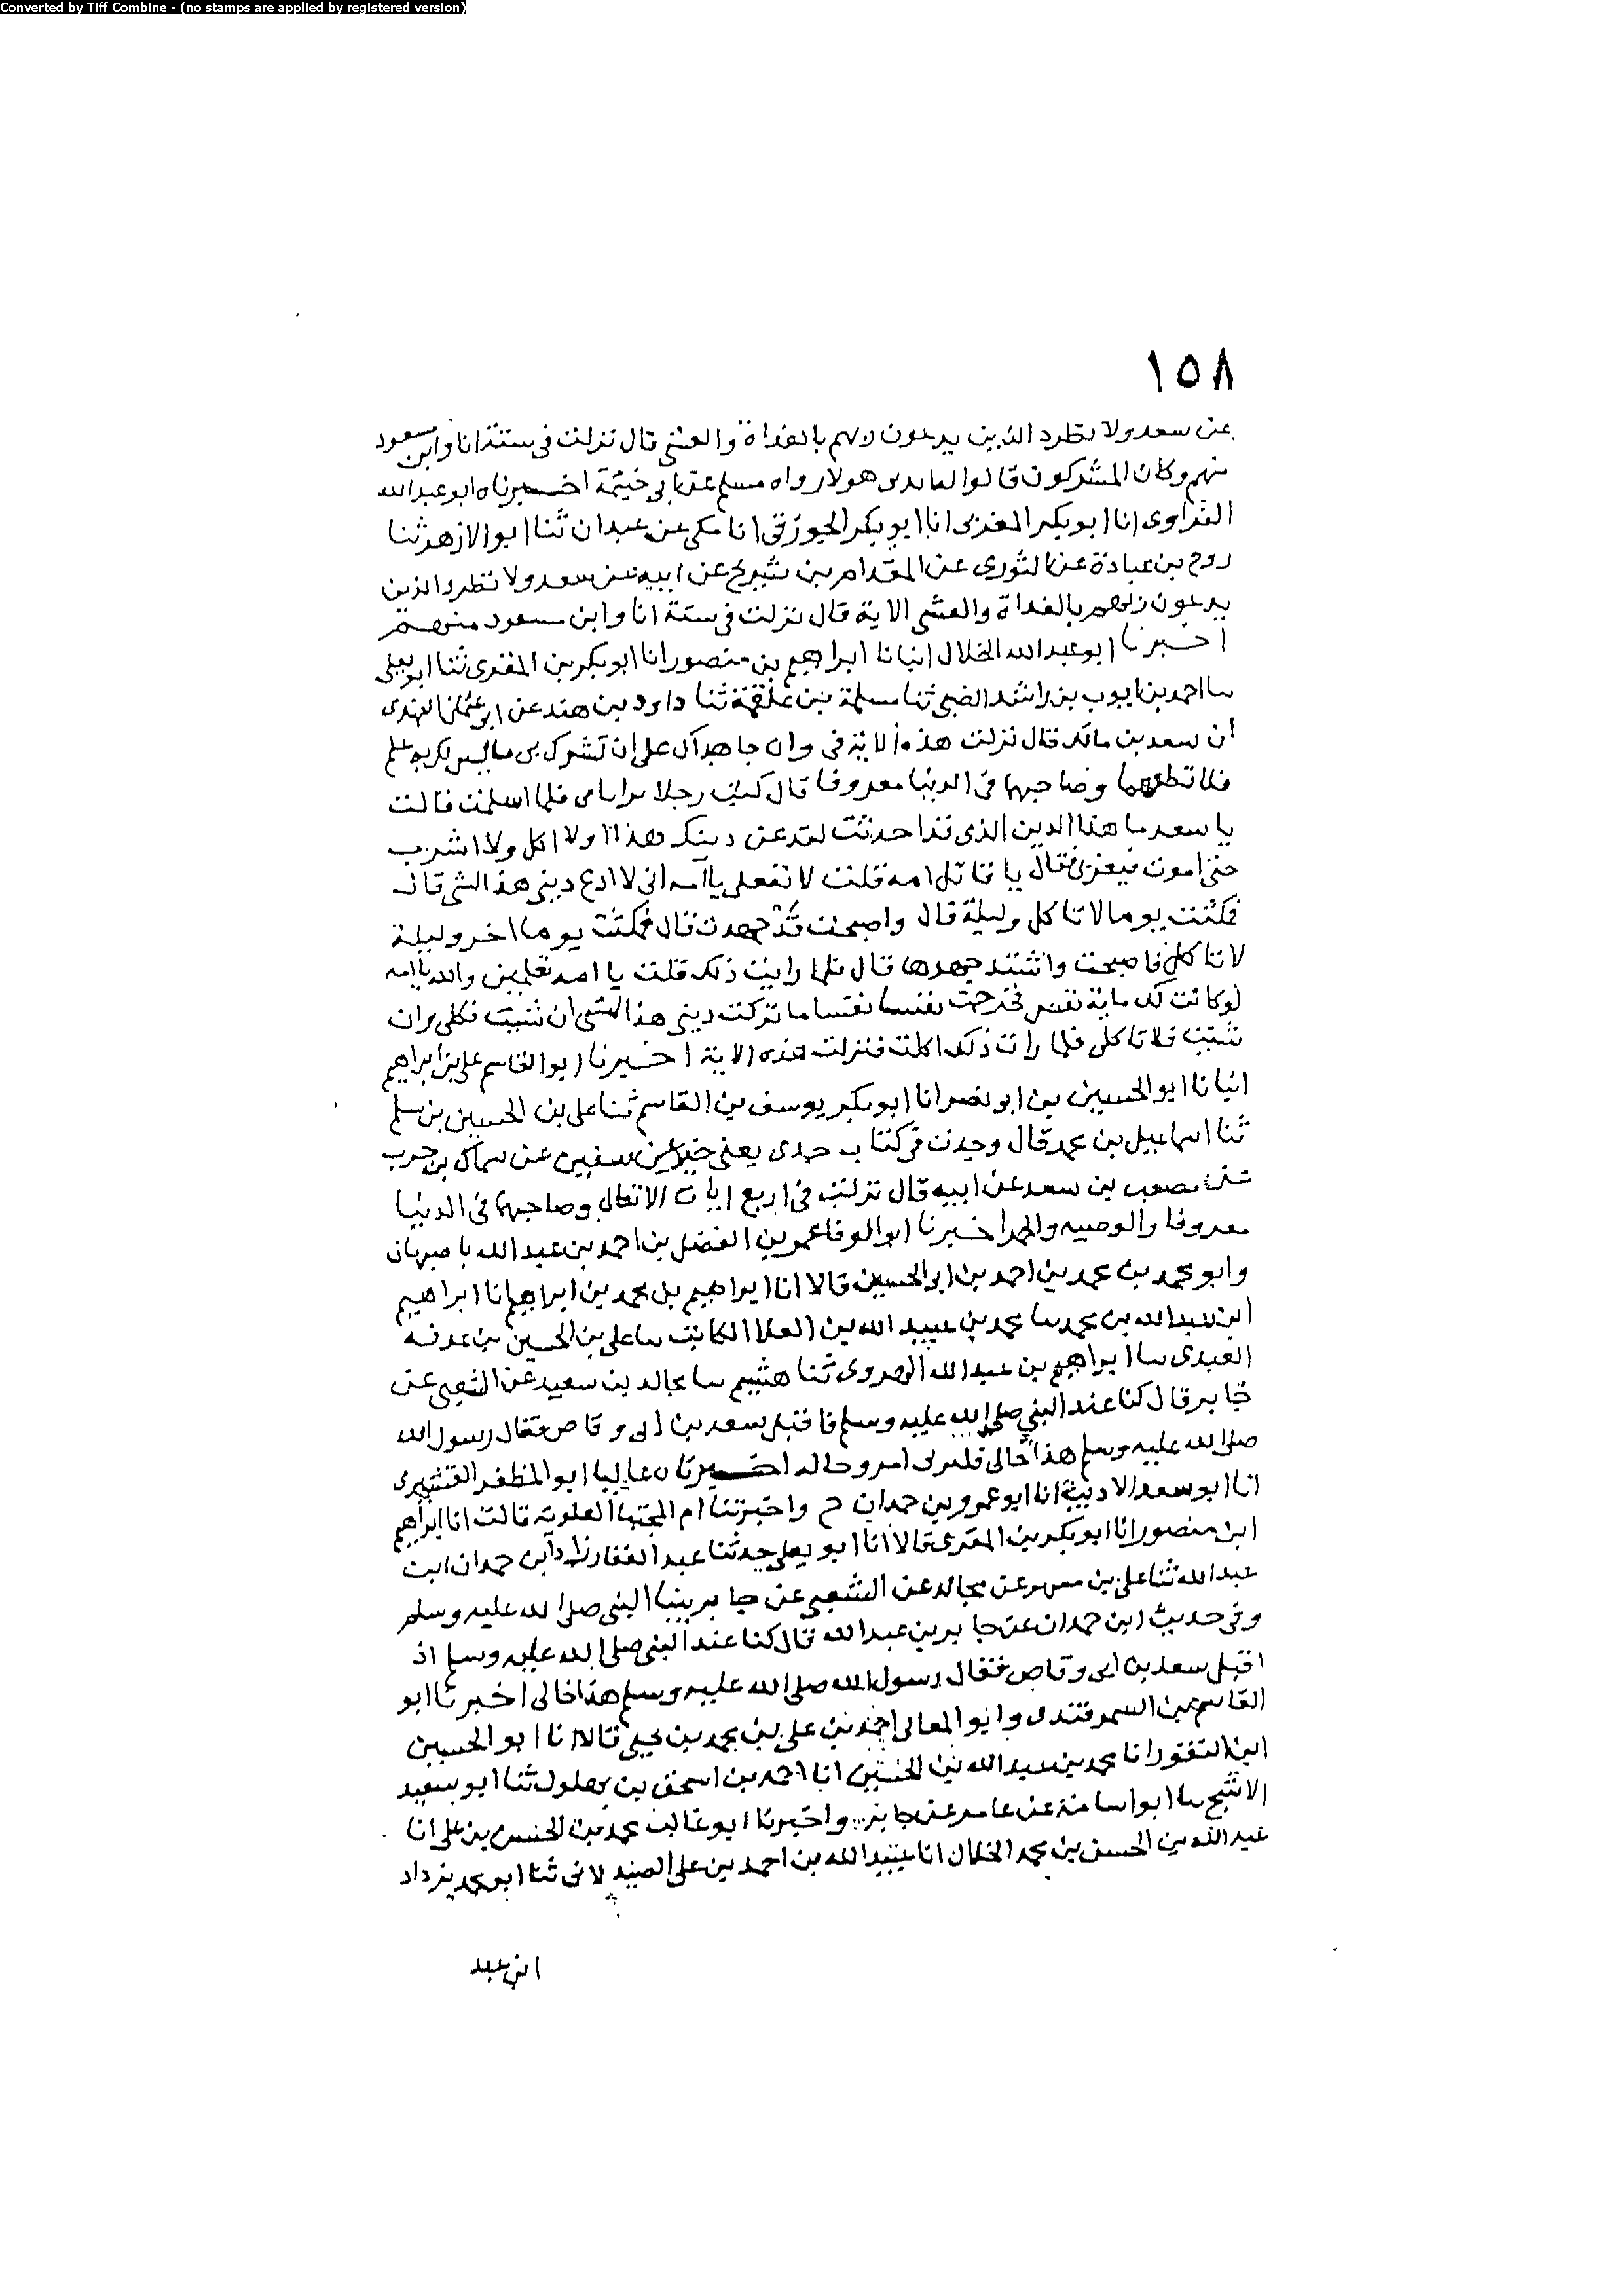 Converted by Tiff Combine - (no stamps are applied by registered version)
١٥٨
عن سعد ولا تطرد الذين يدعون ربهم بالغداة والعشي قال نزلت في ستة انا وابن مسعود
منهم وكان المشركون قالوا له هولا رواه مسلم عن ابي خيثمة اخبرناه ابو عبد الله
الفراوي انا ابو بكر المغربي انا ابو بكر الجوزقي انا مكي عن عبدان ثنا ابو الازهر ثنا
روح بن عبادة عن الثوري عن المقدام بن شريح عن ابيه عن سعد ولا تطرد الذين
يدعون ربهم بالغداة والعشي الاية قال نزلت في ستة انا وابن مسعود منهم
اخبرنا ابو عبد الله الخلال انبانا ابراهيم بن منصور انا ابو بكر بن المقري ثنا ابو يعلى
سا احمد بن ايوب بن راشد الضبي ثنا مسلمة بن علقمة ثنا داود بن هند عن ابي عثمان النهدي
ان سعد بن مالك قال نزلت هذه الاية في وان جاهداك على ان تشرك بي ما ليس لك به علم
فلا تطعهما وصاحبهما في الدنيا معروفا قال كنت رجلا برا بامي فلما اسلمت قالت
يا سعد ما هذا الدين الذي قد احدثت لتدعن دينك هذا او لا اكل ولا اشرب
حتى اموت فيعزى فقال يا قاتل امه قلت لا تفعلي يا امه اني لا ادع ديني هذا الشي قال
فمكثت يوما لا تاكل وليلة قال واصبحت قد جهدت قال فمكثت يوما اخر وليلة
لا تاكل فاصبحت واشتد جهدها قال فلما رايت ذلك قلت يا امه تعلمين والله يا امه
لو كانت لك ماية نفس فخرجت نفسا نفسا ما تركت ديني هذا الشي ان شيت فكلي وان
شيت فلا تاكلي فلما رات ذلك اكلت فنزلت هذه الاية اخبرنا ابو القاسم علي بن ابراهيم
انبانا ابو الحسين بن ابو نصر انا ابو بكر يوسف بن القاسم ثنا علي بن الحسين بن سلم
ثنا اسماعيل بن محمد قال وجدت في كتاب جدي يعني عن سفين عن سماك بن حرب
عن مصعب بن سعد عن ابيه قال نزلت في اربع ايات الانفال وصاحبهما في الدنيا
معروفا والوصيه والخمر اخبرنا ابو الوفا عمر بن الفضل بن احمد بن عبد الله باصبهان
وابو محمد بن محمد بن احمد بن ابو الحسين قالا انا ابراهيم بن محمد بن ابراهيم انا ابراهيم
ابن عبد الله بن محمد سا محمد بن عبيد الله بن العلا الكاتب سا علي بن الحسين بن عرفه
العبدي سا ابراهيم بن عبد الله الهروي ثنا هشيم سا مجالد بن سعيد عن الشعبي عن
جابر قال كنا عند النبي صلى الله عليه وسلم فاقبل سعد بن ابي وقاص فقال رسول الله
صلى الله عليه وسلم هذا خالي فليرني امرو خاله اخبرناه عاليا ابو المظفر القشيري
انا ابو سعد الاديب انا ابو عمرو بن حمدان ح واخبرتنا ام المجتبا العلويه قالت انا ابراهيم
ابن منصور انا ابو بكر بن المقري قالا انا ابو يعلى حدثنا عبد الغفار زاد ابن حمدان ابن
عبد الله ثنا علي بن مسهر عن مجالد عن الشعبي عن جابر بينا النبي صلى الله عليه وسلم
وفي حديث ابن حمدان عن جابر بن عبد الله قال كنا عند النبي صلى الله عليه وسلم اذ
اقبل سعد بن ابي وقاص فقال رسول الله صلى الله عليه وسلم هذا خالي اخبرنا ابو
القاسم بن السمرقندي وابو المعالي احمد بن علي بن محمد بن يحيى قالا انا ابو الحسين
ابن النقور انا محمد بن عبد الله بن الحسين انا احمد بن اسحق بن بهلول ثنا ابو سعيد
الاشج سا ابو اسامة عن عامر عن جابر واخبرنا ابو غالب محمد بن الحسن بن علي انا
عبد الله بن الحسن بن محمد الخلال انا عبيد الله بن احمد بن علي الصيدلاني ثنا ابو محمد يزداد
ابن عبد